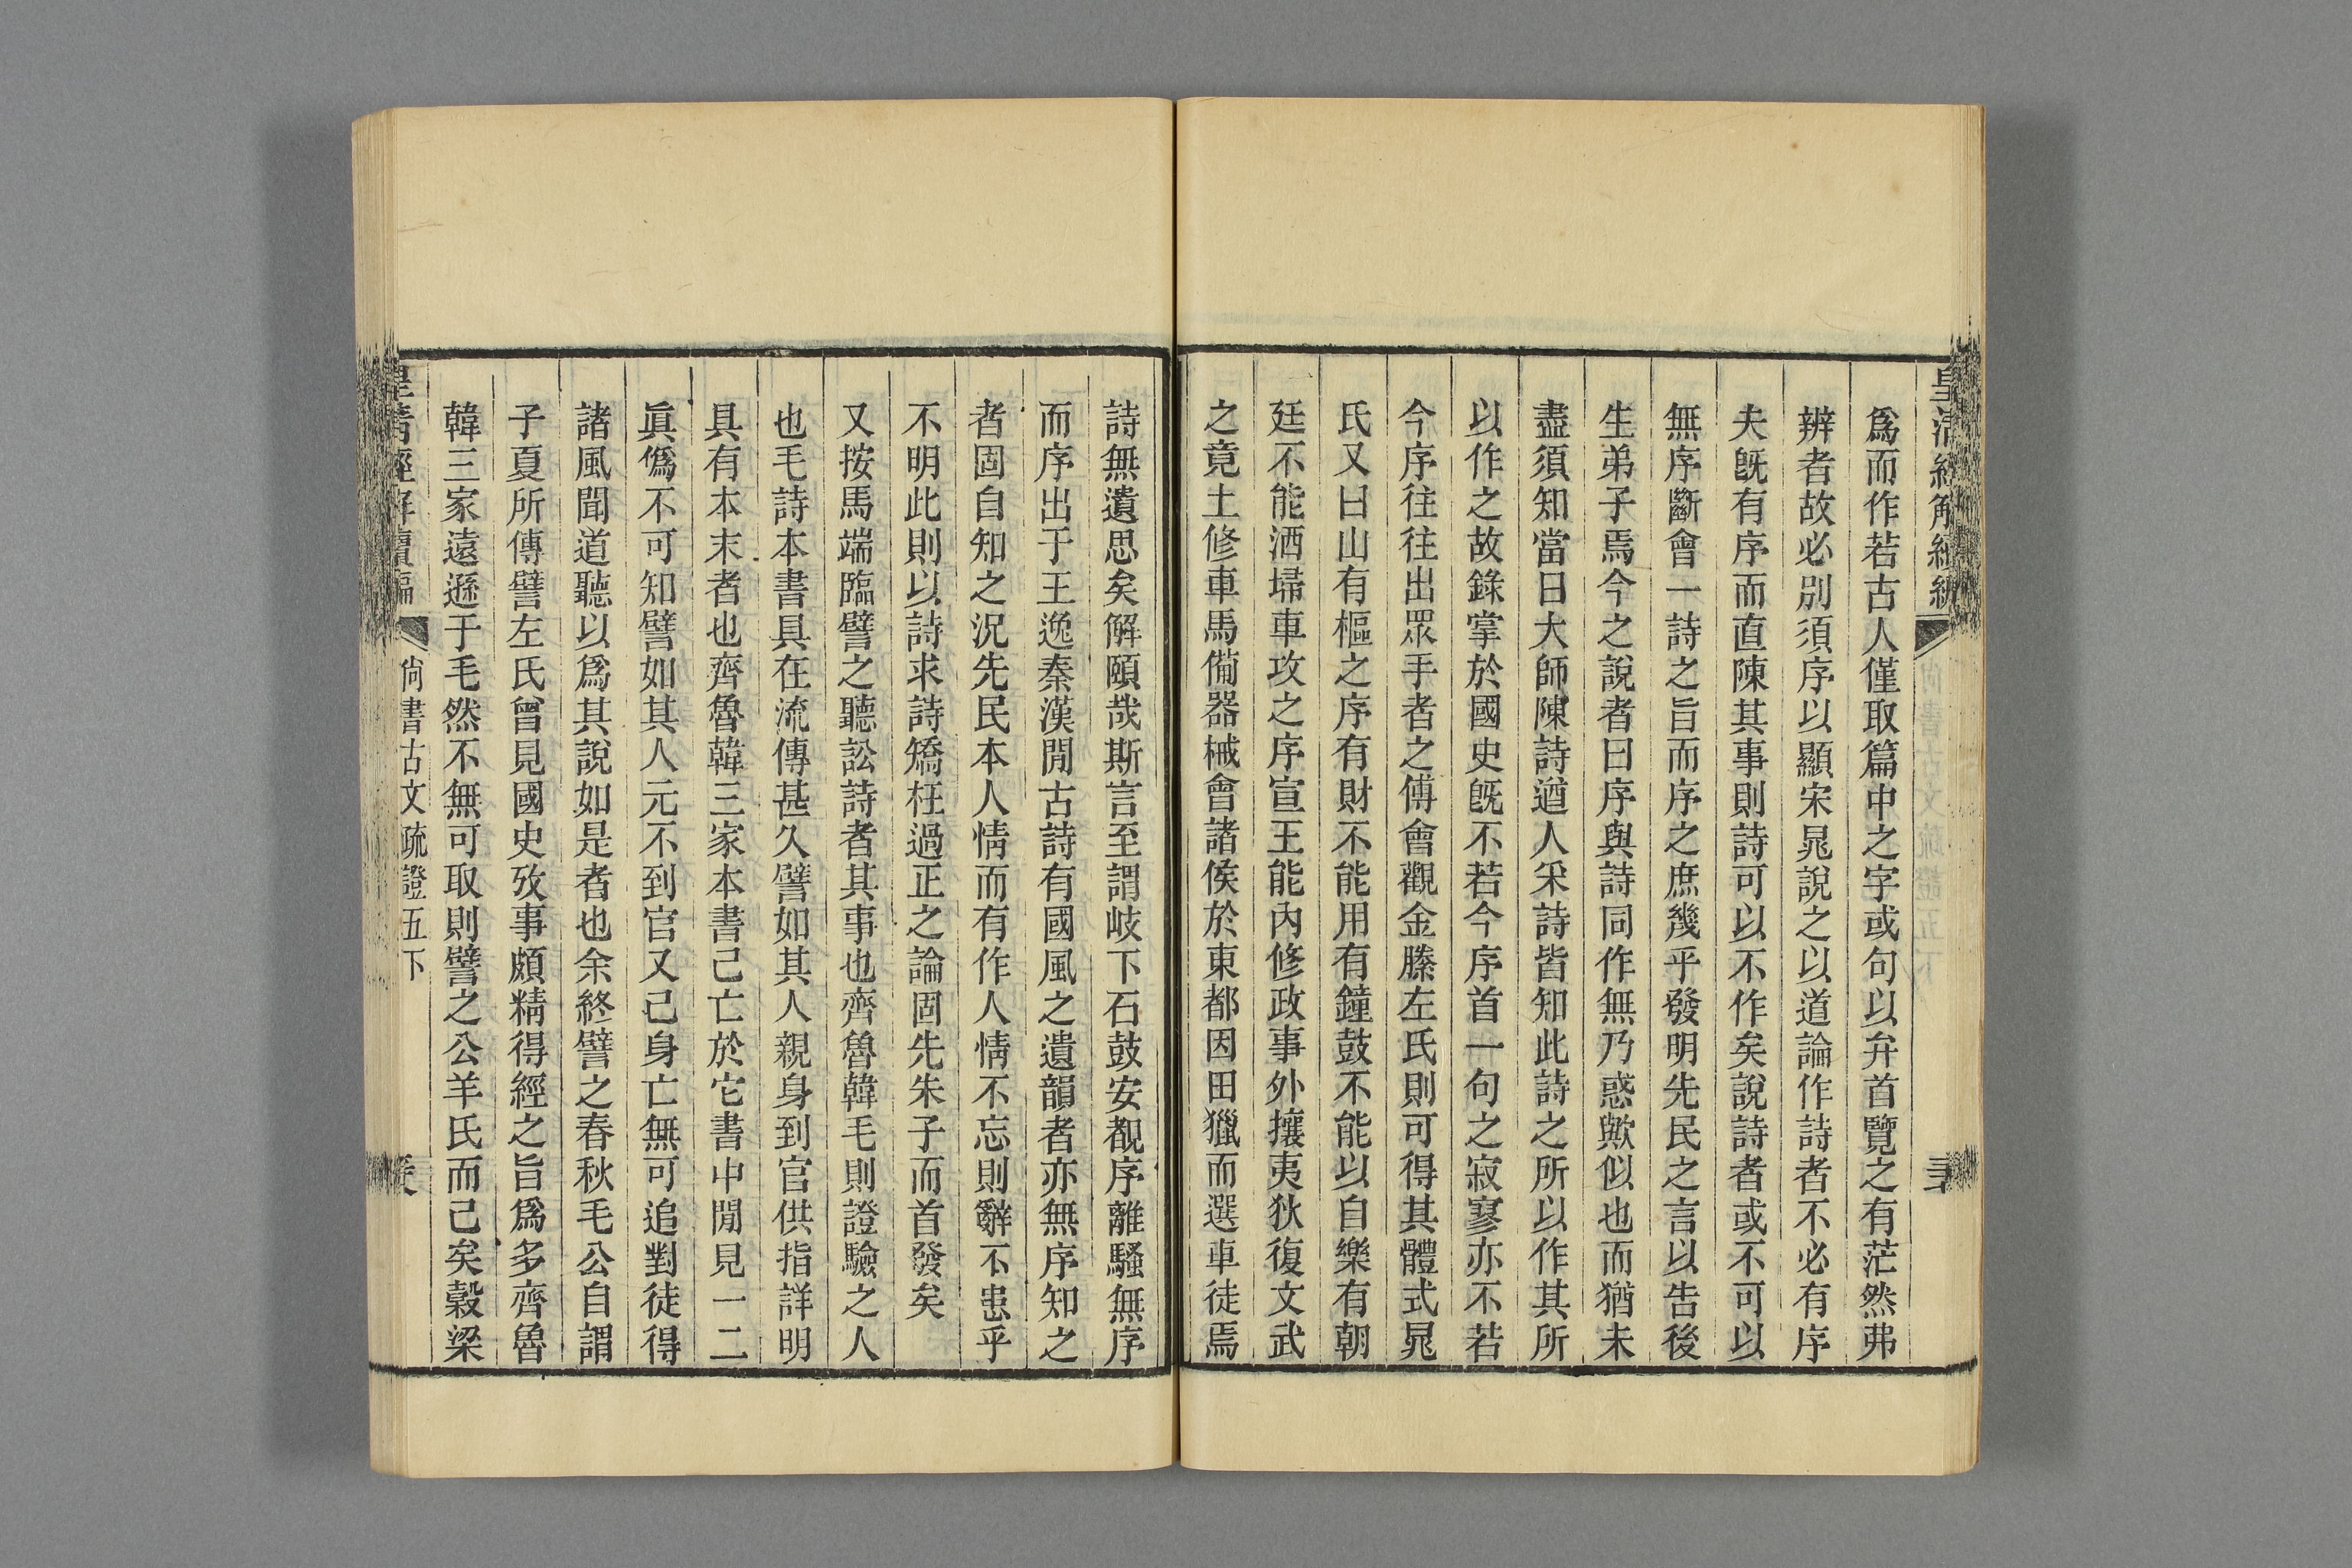 皇清經解續編
爲而作若古人僅取篇中之字或句以弁首覽之有茫然弗
辨者故必別須序以顯宋晁說之以道論作詩者不必有序
夫旣有序而直陳其事則詩可以不作矣說詩者或不可以
無序斷會一詩之旨而序之庶幾乎發明先民之言以吿後
生弟子焉今之說者曰序與詩同作無乃惑歟似也而猶未
盡須知當日大師陳詩遒人采詩皆知此詩之所以作其所
以作之故錄掌於國史旣不若今序首一句之寂寥亦不若
今序往往出眾手者之傅會觀金縢左氏則可得其體式晁
氏又曰山有樞之序有財不能用有鐘鼓不能以自樂有朝
廷不能洒埽車攻之序宣王能內修政事外攘夷狄復文武
之竟土修車馬備器械會諸侯於東都因田獵而選車徒焉
詩無遺思矣解頤哉斯言至謂岐下石鼓安覩序離騷無序
而序出于王逸秦漢閒古詩有國風之遺韻者亦無序知之
者固自知之況先民本人情而有作人情不忘則辭不患乎
不明此則以詩求詩矯枉過正之論固先朱子而首發矣
又按馬端臨譬之聽訟詩者其事也齊魯韓毛則證驗之人
也毛詩本書具在流傳甚久譬如其人親身到官供指詳明
具有本末者也齊魯韓三家本書已亡於它書中閒見一二
眞僞不可知譬如其人元不到官又已身亡無可追對徒得
諸風聞道聽以爲其說如是者也余終譬之春秋毛公自謂
子夏所傳譬左氏曾見國史攷事頗精得經之旨爲多齊魯
韓三家遠遜于毛然不無可取則譬之公羊氏而已矣穀梁
皇清經解續編
尙書古文疏證五下